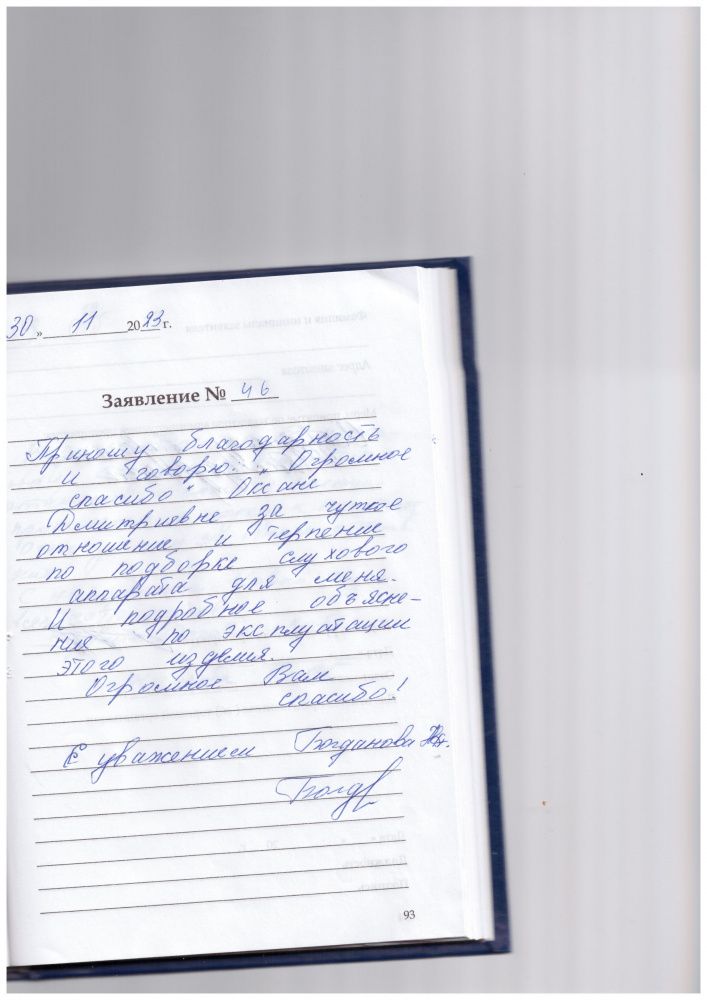 30 » 11 2023 г.
Заявление № 46
Приношу благодарность
и говорю: „Огромное
спасибо" Оксане
Дмитриевне за чуткое
отношение и терпение
по подборке слухового
аппарата для меня.
И подробное объясне-
ния по эксплуатации
этого изделия.
Огромное Вам
спасибо!
С уважением Богданова
Богд
93